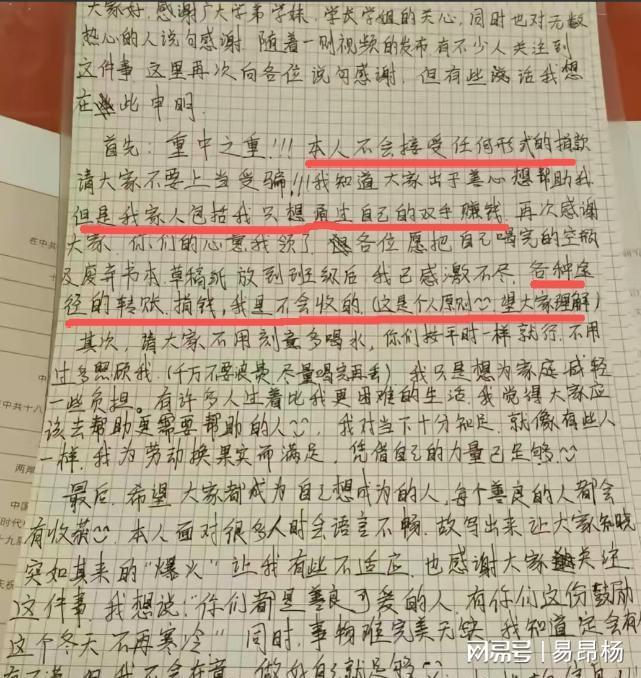 大家好,感谢广大学弟学妹、学长学姐的关心,同时也对无数
热心的人说句感谢,随着一则视频的发布有不少人关注到
这件事 这里再次向各位说句感谢,但有些说话我想
在此申明
首先:重中之重!!! 本人不会接受任何形式的捐款
请大家不要上当受骗!!!我知道大家出于善心想帮助我
但是我家人包括我只想通过自己的双手赚钱,再次感谢
大家,你们的心意我领了 各位愿把自己喝完的空瓶
及废弃书本.草稿纸 放到班级后 我已感激不尽,各种途
径的转账.捐钱,我是不会收的.(这是个人原则 望大家理解)
其次,请大家不用刻意多喝水,你们按平时一样就行,不用
过多照顾我,(千万不要浪费,尽量喝完再丢)我只是想为家庭减轻
一些负担。有许多人过着比我更困难的生活,我觉得大家应
该去帮助更需要帮助的人 我对当下十分知足,就像有些人
一样,我为劳动换果实而满足,凭借自己的力量已足够.
最后,希望 大家都成为自己想成为的人,每个善良的人都会
有收获 本人面对很多人时会语言不畅,故写出来让大家知晓
突如其来的“爆火”让我有些不适应,也感谢大家关注
这件事,我想说:“你们都是善良可爱的人,有你们这份鼓励
这个冬天 不再寒冷” 同时 事物难完美无缺,我知道定会有
不满,但我不会在意,做我自己就足够
在中共
中共十八
两岸
中国
时代
十九届
庆祝
搜狐号@易昂杨